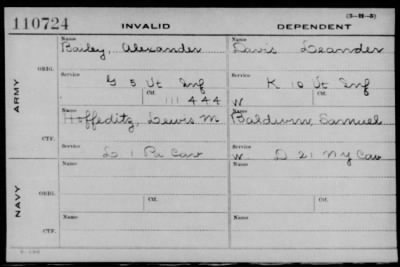 (3-H-5)
110724 INVALID DEPENDENT
Name Name
Bailey, Alexander Davis Leander
ARMY
ORIG.
Service Service
G 5 Vt Inf K 10 Vt Inf
Ctf. Ctf.
111444 W
Name Name
Hoffeditz, Lewis M Baldwin, Samuel
CTF.
Service Service
L 1 Pa Cav W. D 21 NY Cav
NAVY
ORIG.
Name Name
Ctf. Ctf.
CTF.
Name Name